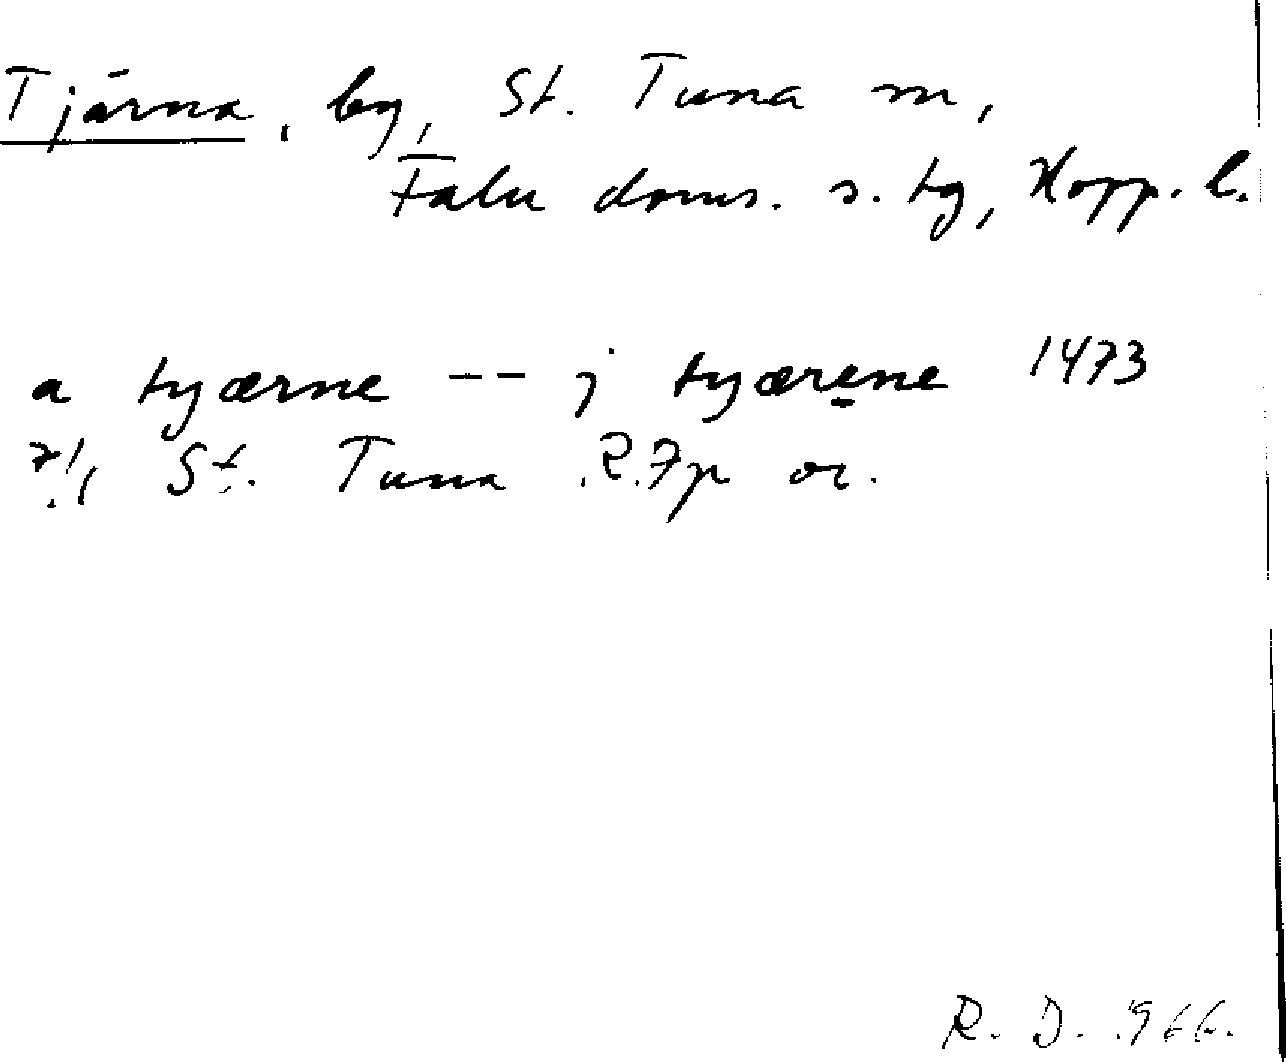 Tjärna, by, St. Tuna sn,
Falu doms. s. tg, Kopp. l.
a tyærne -- j tyærene 1473
7/1, St. Tuna R.Fp or.
R. D. 1966.